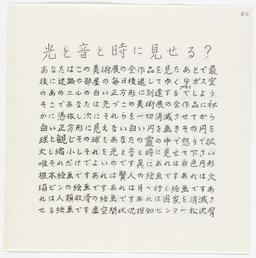 光と音と時に見せる？
あなたはこの美術展の全作品を見たあとで最
後に迷路の部屋の毎日後退してゆく ガス室
のあのニルの白い正方形に到達するでしょう
そこであなたは先づこの美術展の全作品に秘
かに憑依し次にそれらを一切消滅させてから
白い正方形に見えない白い円を画きその円を
球と観じその球をあなたの霊の中で 拡
大し縮小しそれを光と音と時に見せて下さい
唯それだけでよいのです真にあれは白色
根本絵画ですあれは賢人の絵画ですあれは火
焔ビンの絵画ですあれは月へ行く絵画ですあ
れは人類救済の絵画ですあれは国家を消滅さ
せる絵画です虚空間状況探知センター松沢宥